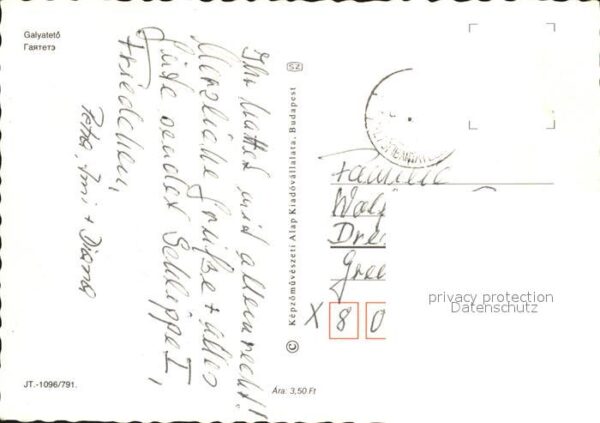 Galyatető
Галятетэ
Ihr hattet mit allem recht!
Herzliche Grüße + alles
Gute sendet Schleippe I,
Friedchen,
Petra, + Diana
SZ
© Képzőművészeti Alap Kiadóvállalata, Budapest
Familie
Wol
Dre
Gree
X 8 0
privacy protection
Datenschutz
JT.-1096/791.
Ára: 3,50 Ft